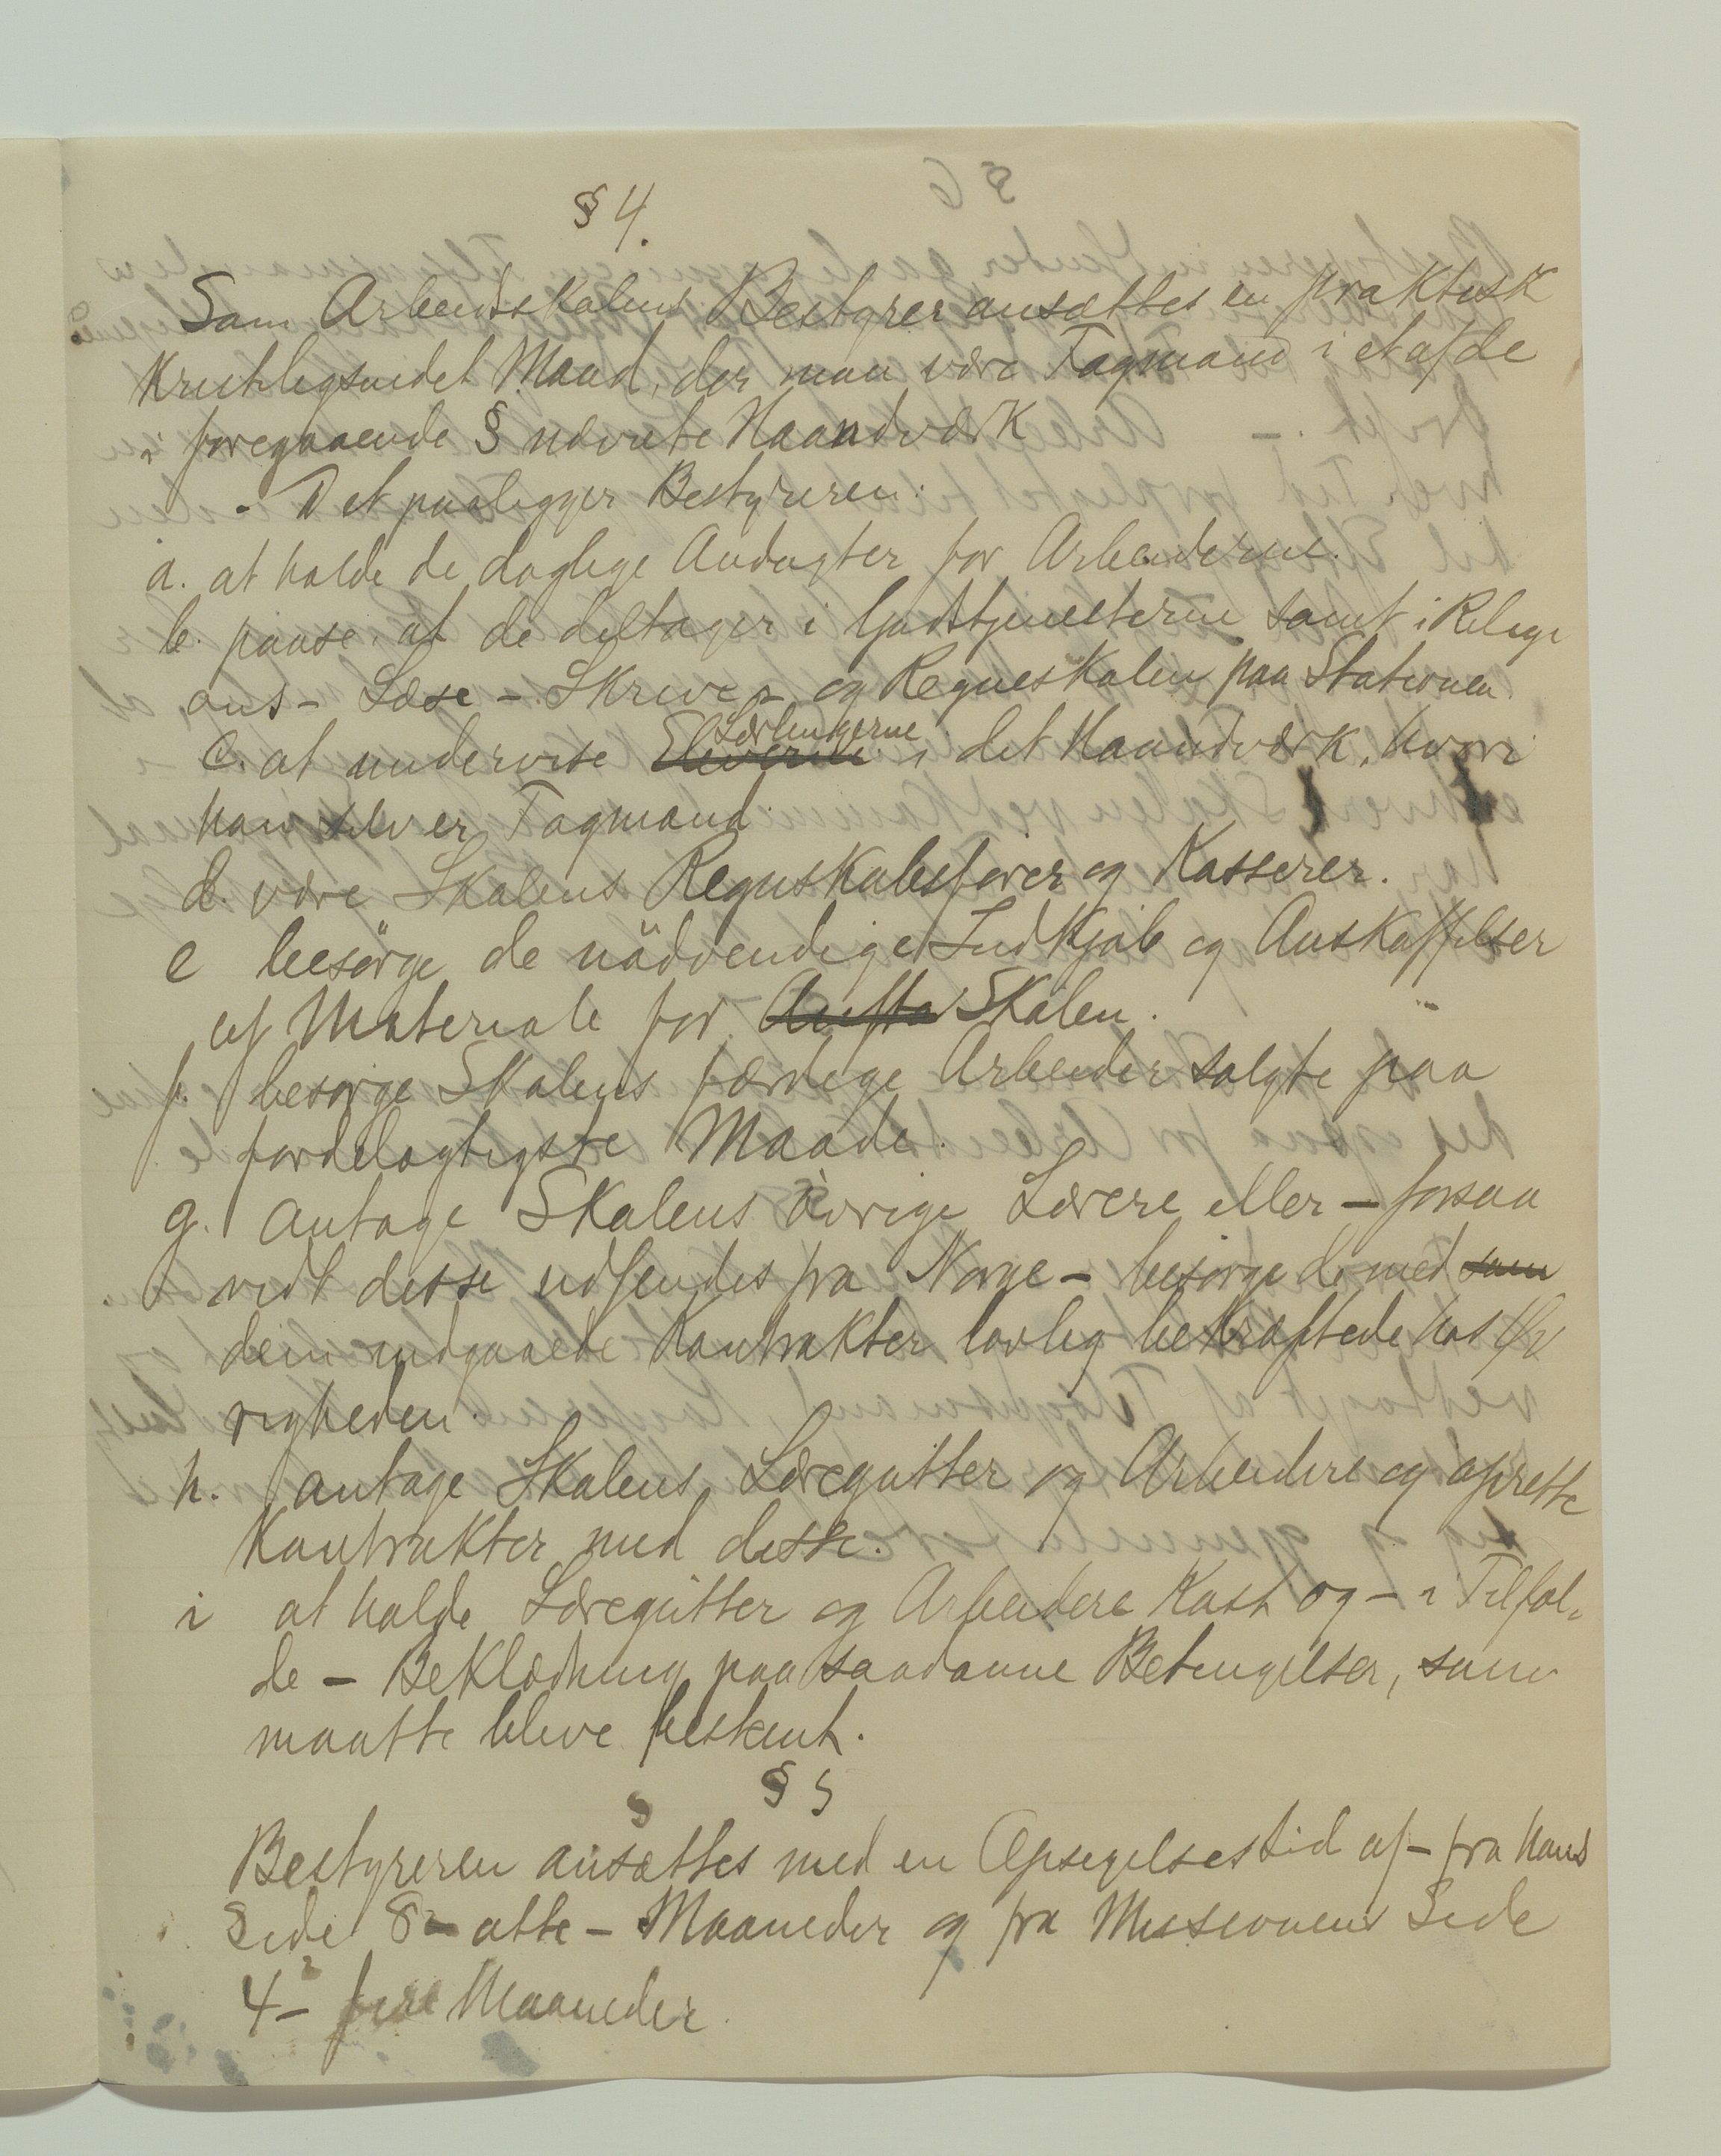 § 4.
Som Arbeidsskolens Bestyrer ansættes en praktisk
kristeligsindet Mand, der maa være Fagmand i et af de
i foregaaende § nævnte Haandværk
- Det paaligger Bestyreren:
a. at holde de daglige Andagter for Arbeiderne.
b. paase, at de deltager i Gudstjenesterne samt i Religi
ons- Læse- Skrive- og Regneskolen paa Stationen.
c. at undervise Eleverne Lærlingerne i det Haandværk, hvori
han selv er Fagmand.
d. være Skolens Regnskabsfører og Kasserer.
e besørge de nödvendige Indkjøb og Anskaffelser
af Materiale for Skolen.
f. besørge Skolens færdige Arbeider solgte paa
fordelagtigste Maade.
g. antage Skolens övrige Lærere eller – forsaa
vidt disse udsendes fra Norge – besørge de med som
dem indgaaede Kontrakter lovlig bekræftede hos Øv
righeden.
h. antage Skolens Læregutter og Arbeidere og oprette
Kontrakter med disse.
i at holde Læregutter og Arbeidere Kost og – i Tilfæl-
de – Beklædning paa saadanne Betingelser, som
maatte blive bestemt.
§ 5
Bestyreren ansættes med en Opsigelsestid af – fra hans
Side 8 – otte – Maaneder og fra Missionens Side
4 – fire Maaneder.